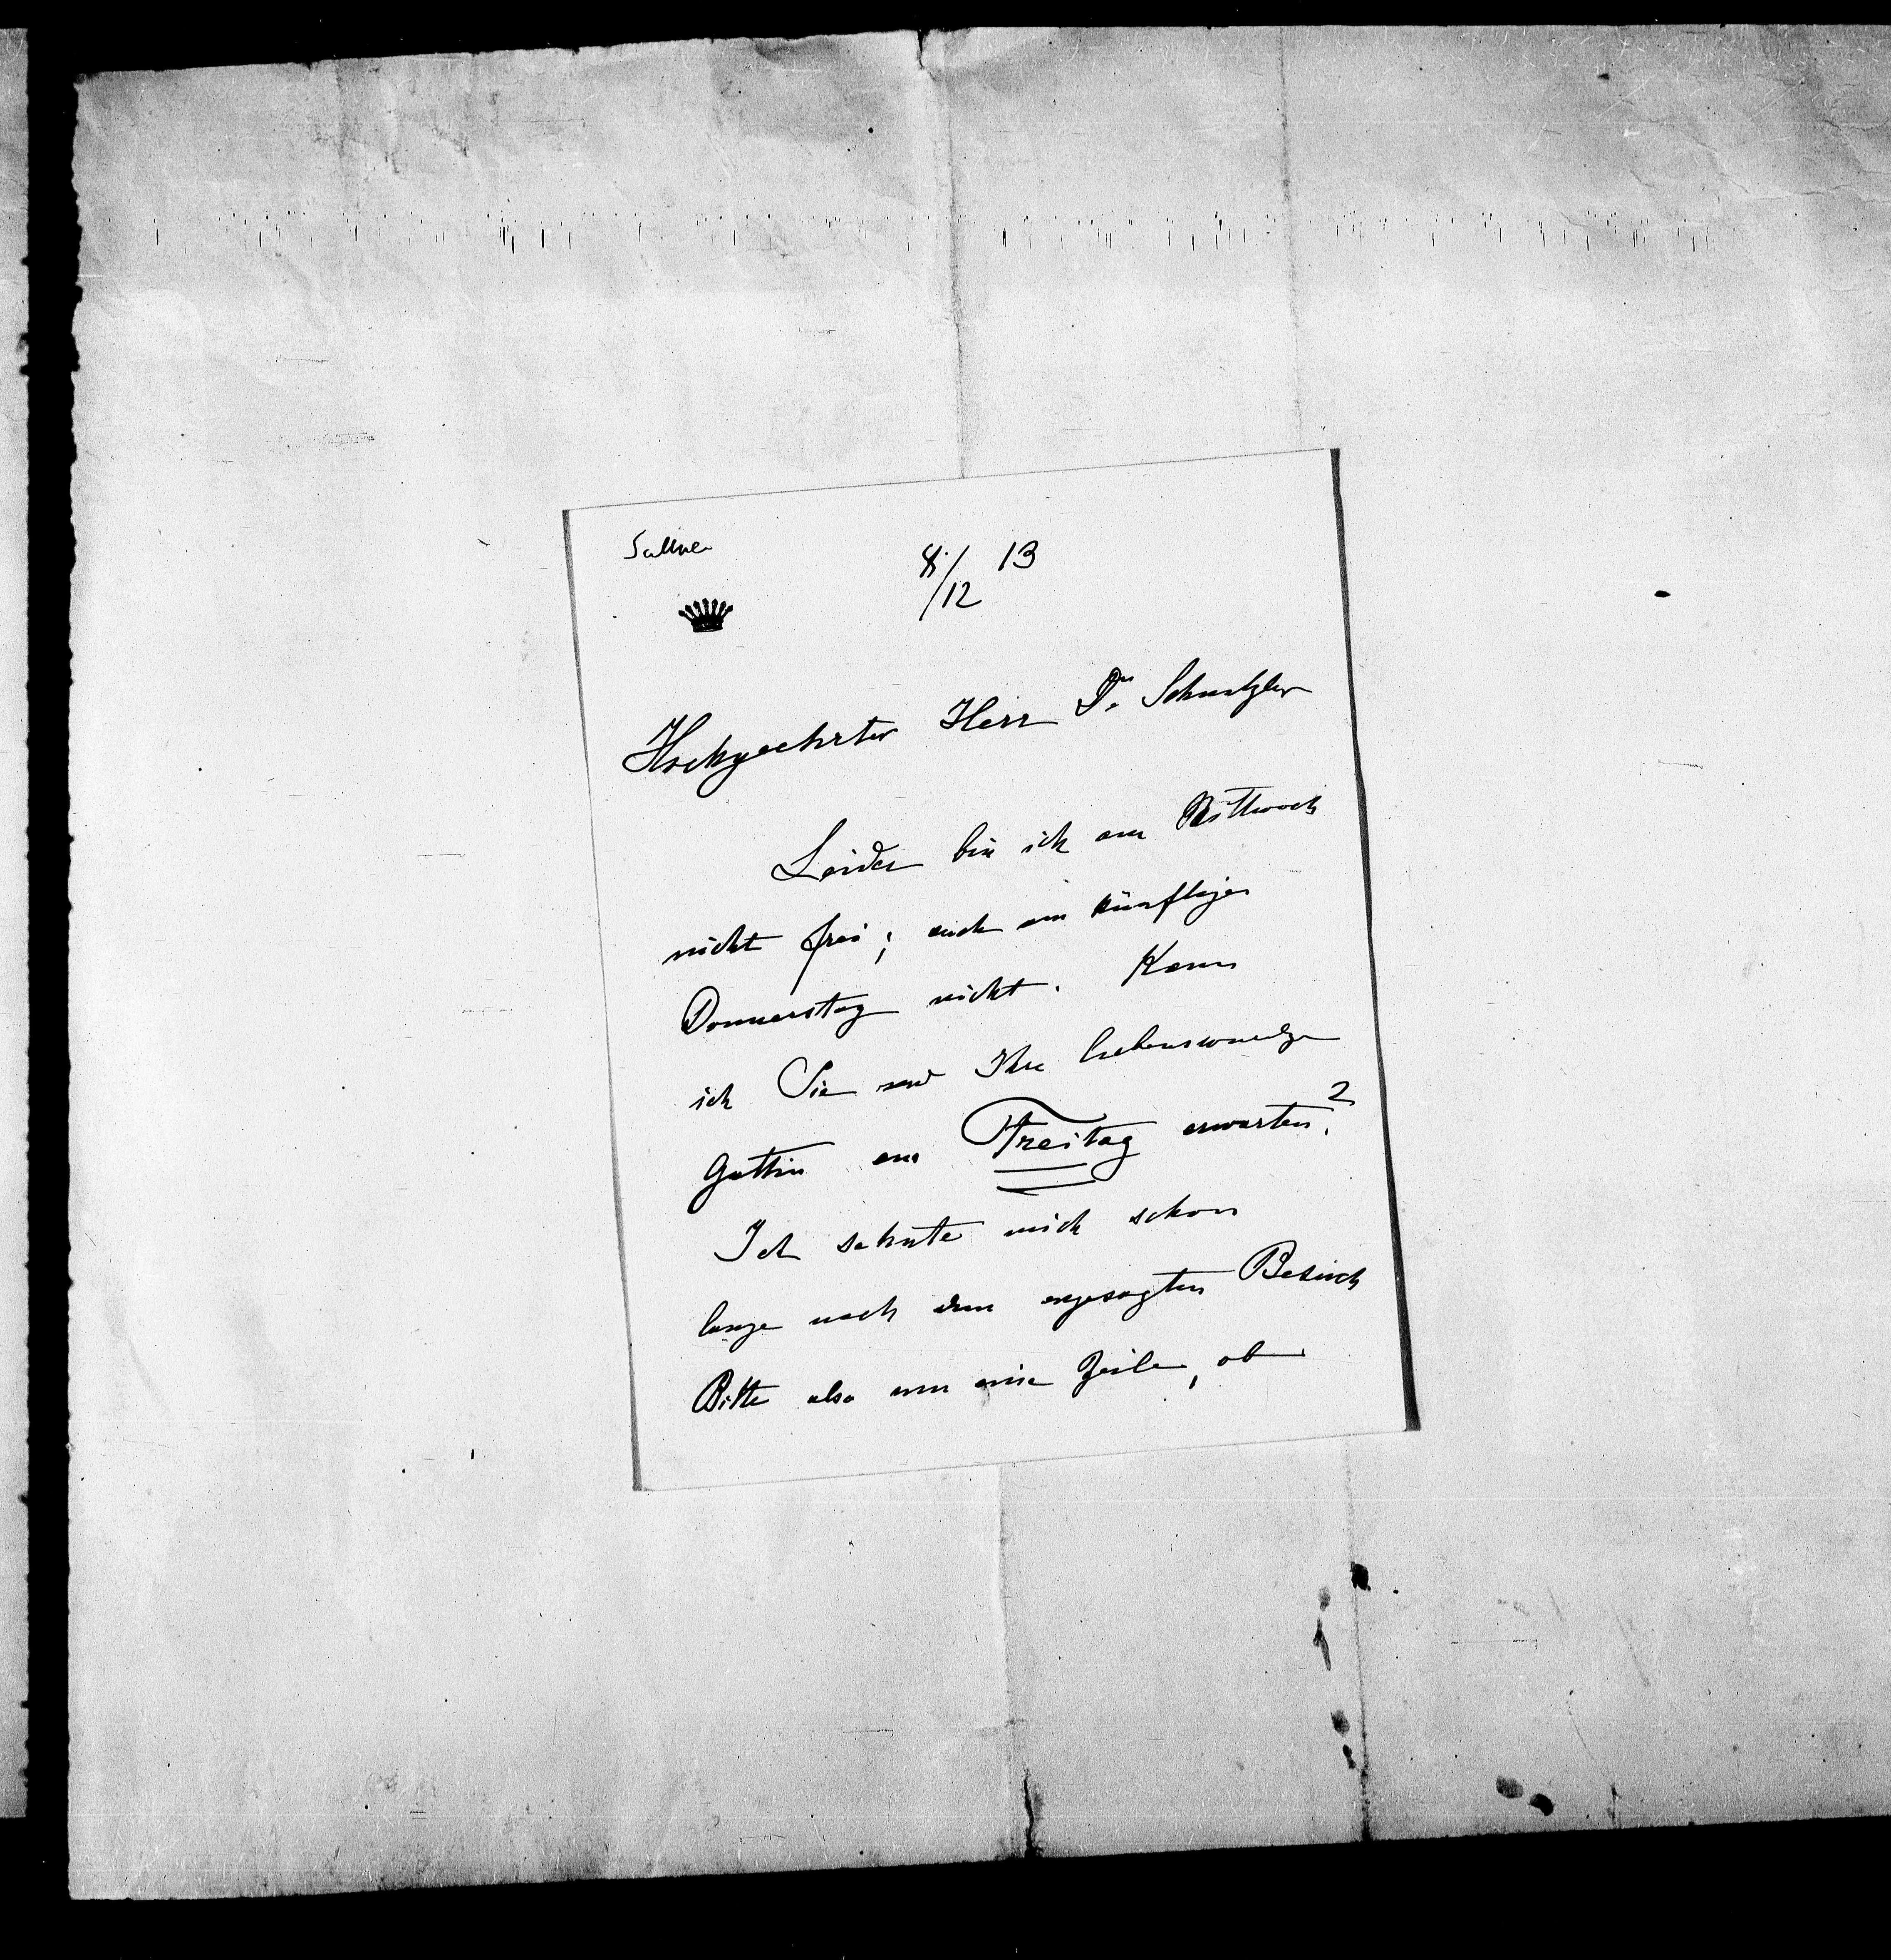 Suttner
8./12 13
Hochgeehrter Herr Dr. Schnitzler
Leider bin ich am Mittwoch
nicht frei; auch am künftigen
Donnerstag nicht. Kann
ich Sie und Ihre liebenswürdige
Gattin am Freitag erwarten?
Ich sehnte mich schon
lange nach dem angesagten Besuch
Bitte also um eine Zeile, ob